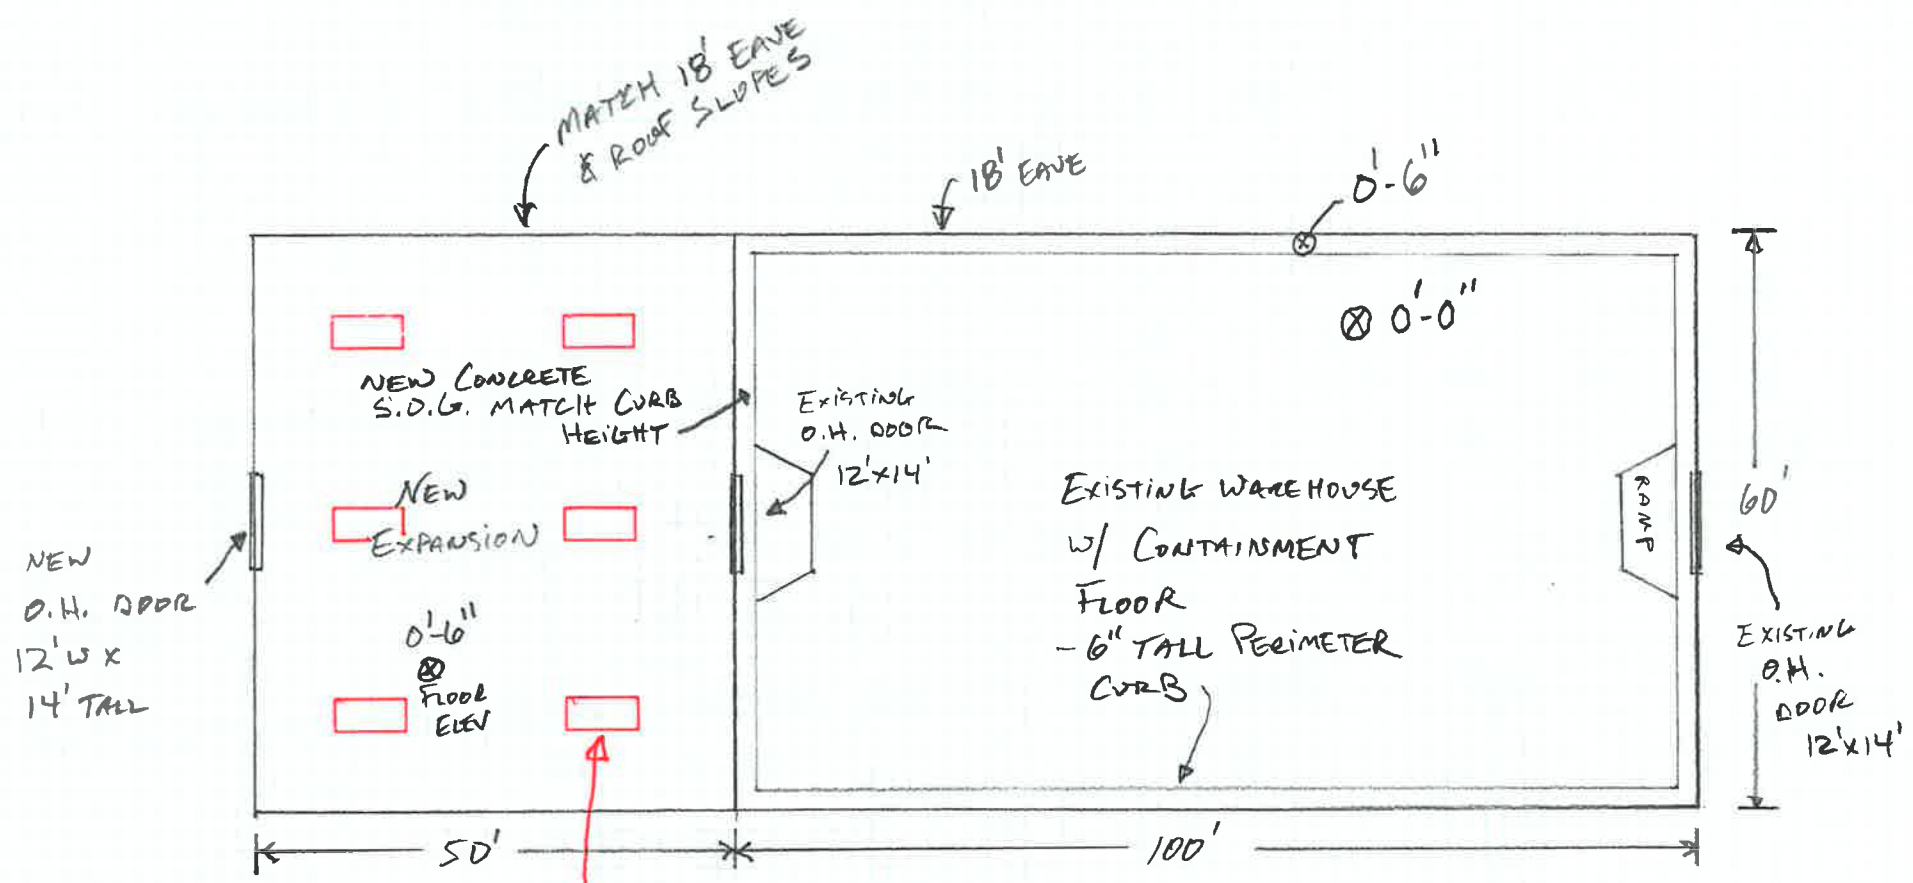 MATCH 18' EAVE
& ROOF SLOPES
18' EAVE
0'-6"
0'-0"
NEW CONCRETE
S.O.G. MATCH CURB
HEIGHT
EXISTING
O.H. DOOR
12'x14'
NEW
EXPANSION
EXISTING WAREHOUSE
W/ CONTAINMENT
FLOOR
- 6" TALL PERIMETER
CURB
RAMP
60'
NEW
O.H. DOOR
12'W X
14' TALL
0'-6"
FLOOR
ELEV
EXISTING
O.H.
DOOR
12'x14'
50'
100'